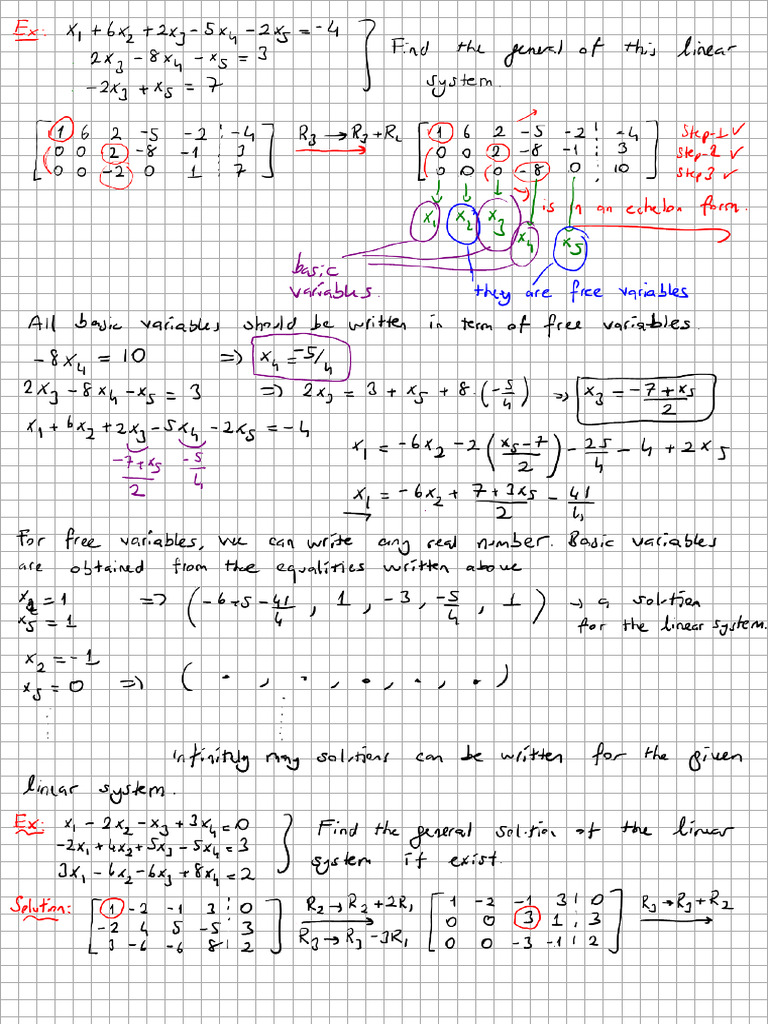 Ex: x₁ + 6x₂ + 2x₃ - 5x₄ - 2x₅ = -4
2x₃ - 8x₄ - x₅ = 3
-2x₃ + x₅ = 7
Find the general of this linear
system.
[1 6 2 -5 -2 ⋮ -4
0 0 2 -8 -1 ⋮ 3
0 0 -2 0 1 ⋮ 7]
R₃ → R₃ + R₂
[1 6 2 -5 -2 ⋮ -4
0 0 2 -8 -1 ⋮ 3
0 0 0 -8 0 ⋮ 10]
Step-1 ✓
Step-2 ✓
Step 3 ✓
is in an echelon form.
x₁ x₂ x₃ x₄ x₅
basic
variables.
they are free variables
All basic variables should be written in term of free variables.
-8x₄ = 10 ⇒ x₄ = -5/4
2x₃ - 8x₄ - x₅ = 3 ⇒ 2x₃ = 3 + x₅ + 8·(-5/4) ⇒ x₃ = (-7 + x₅)/2
x₁ + 6x₂ + 2x₃ - 5x₄ - 2x₅ = -4
(-7 + x₅)/2 -5/4
x₁ = -6x₂ - 2((x₅ - 7)/2) - 25/4 - 4 + 2x₅
x₁ = -6x₂ + (7 + 3x₅)/2 - 41/4
For free variables, we can write any real number. Basic variables
are obtained from the equalities written above
x₂ = 1
x₅ = 1
⇒ (-6+5-41/4, 1, -3, -5/4, 1) → a solution
for the linear system.
x₂ = -1
x₅ = 0 ⇒ ( . , . , . , . , . )
infinitly many solutions can be written for the given
linear system.
Ex: x₁ - 2x₂ - x₃ + 3x₄ = 0
-2x₁ + 4x₂ + 5x₃ - 5x₄ = 3
3x₁ - 6x₂ - 6x₃ + 8x₄ = 2
Find the general solution of the linear
system if exist.
Solution:
[1 -2 -1 3 ⋮ 0
-2 4 5 -5 ⋮ 3
3 -6 -6 8 ⋮ 2]
R₂ → R₂ + 2R₁
R₃ → R₃ - 3R₁
[1 -2 -1 3 ⋮ 0
0 0 3 1 ⋮ 3
0 0 -3 -1 ⋮ 2]
R₃ → R₃ + R₂